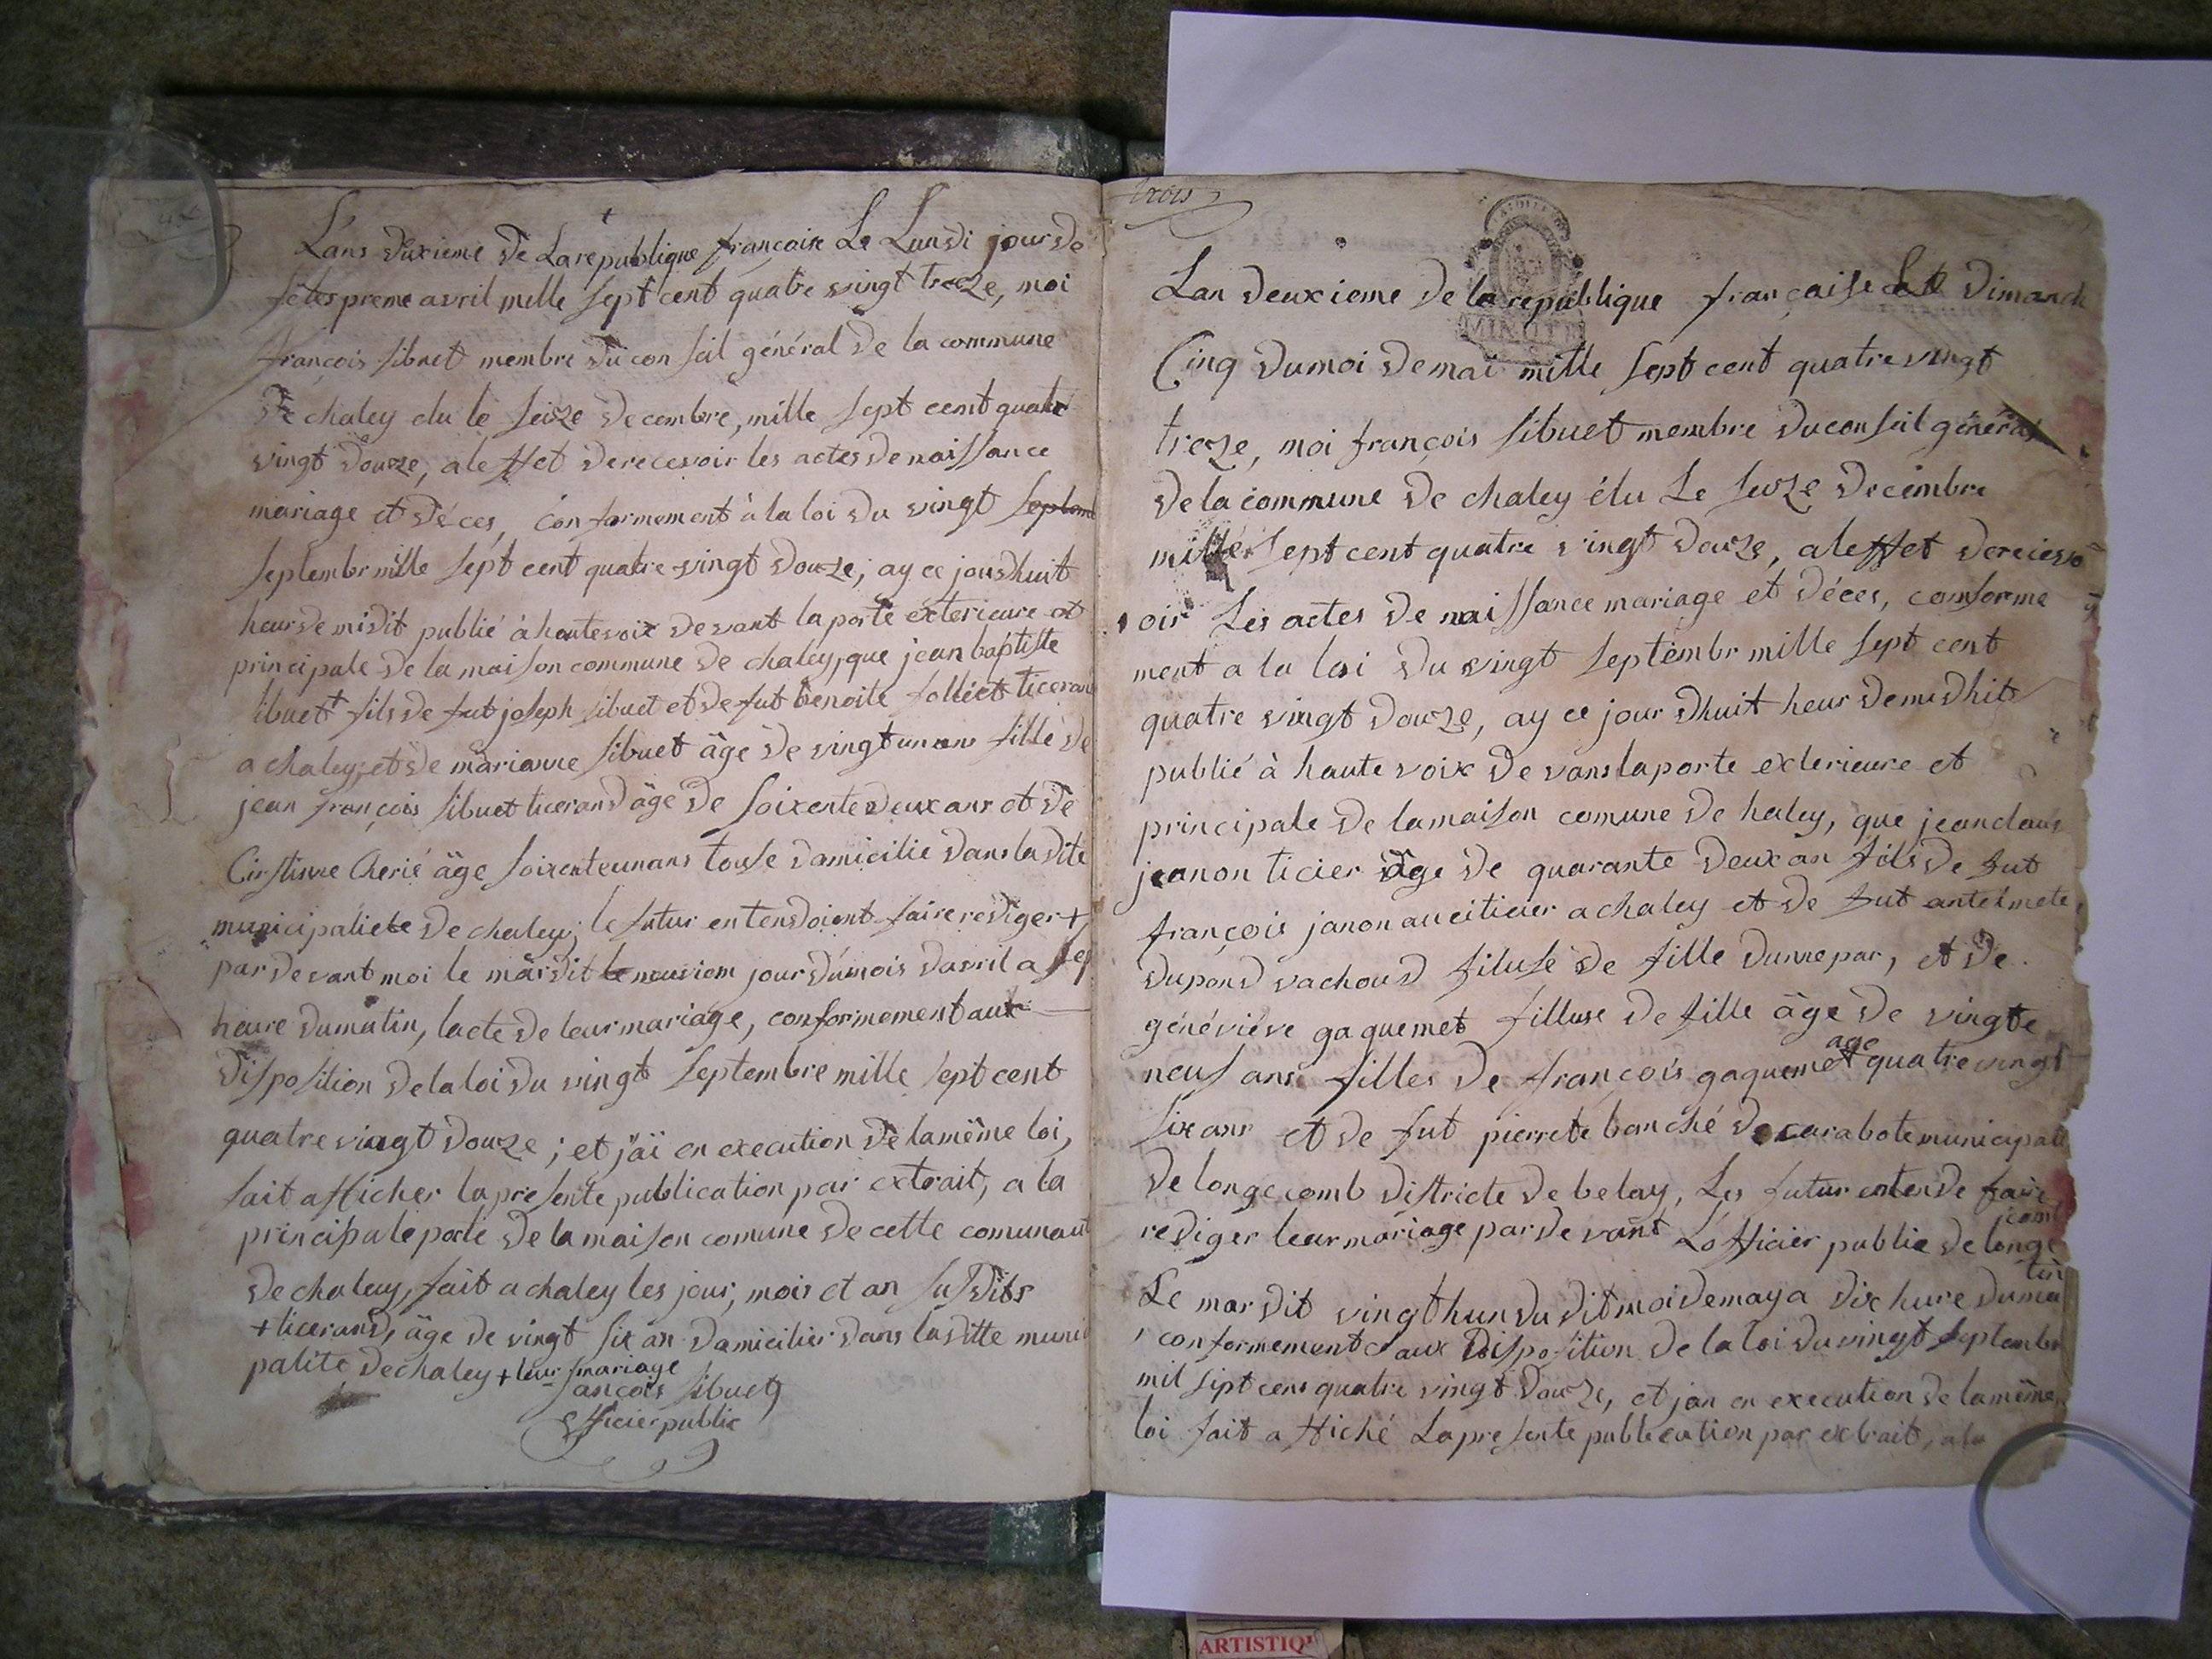 L'ans duxieme de La republique françaisse Le Lundi jour de
fêtes preme avril mille sept cent quatre vingt treze, moi
françois sibuet membre du conseil général de la commune
De chaley elu le seize decembre, mille sept cent quatre
vingt douze, aleffet derecevoir les actes de naissance
mariage et déces, conformement à la loi du vingt septemb
septembr mille sept cent quatre vingt douze, ay ce jourdhuit
heur de midit publié à hautevoix devant la porte exterieure et
principale de la maison commune de chaley, que jean baptiste
sibuet + fils de fut joseph sibuet et de fut benoite folliet ticerand
a chaley, et de marianne sibuet âge de vingt un ans fille de
jean françois sibuet ticerand âge de soixente deux ans et de
Cirstinne Cherié âge soixente un ans touse damicilie dans la dite
municipaliete de chaley; le futur entendoient faire rediger +
par devant moi le mardit le neuviem jour dumois davril a sep
heure dumatin, lacte de leur mariage, conformement aux
disposition de la loi du vingt septembre mille sept cent
quatre vingt douze; et jäi en execution de la même loi,
fait afficher la presente publication par extrait, a la
principale porte de la maison comune de cette comunaut
de chaley, fait a chaley les jour, mois et an susdits
+ ticerand, âge de vingt six an damicilier dans la ditte munici
palite de chaley + leur mariage
françois sibuet
officier public
trois
MINUTE
Lan deuxieme de la republique française Le dimanch
Cinq du moi de mai mille sept cent quatre vingt
treze, moi françois sibuet membre du conseil général
de la commune de chaley élu Le seize decembre
mille sept cent quatre vingt douze, aleffet derecevo
oir Les actes de naissance mariage et déces, conforme
ment a la loi du vingt septembr mille sept cent
quatre vingt douze, ay ce jour dhuit heur demidhit
publié à haute voix de vans la porte exterieure et
principale de la maison comune de haley, que jean claus
jeanon ticier âge de quarante deux an fils de fut
françois janon au citicier a chaley et de fut antelmete
dupond vachoud filuse de fille dunne par, et de
généviéve gaquemet filluse de fille âge de vingte
neuf ans filles de françois gaquemet age quatre vingt
six ans et de fut pierrete banché de carabote municipale
de longecomb districte de belay, Les futur entende faire
rediger leur mariage par de vant Lofficier public de longe
comb
Le mardit vingt hun du dit moi de may a dix hure duma
tin
conformement aux disposition de la loi du vingt septembr
mil sept cens quatre vingt douze, et jan en execution de la même
loi fait affiché La presente publication par extrait, ala
ARTISTIQ